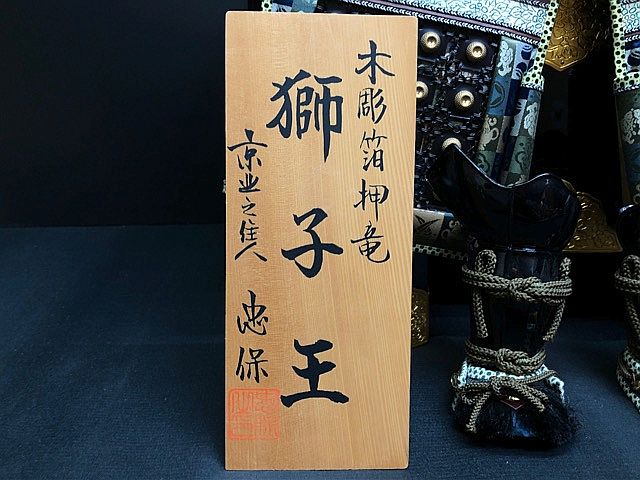 木彫箔押竜
獅子王
京出之住人
忠保